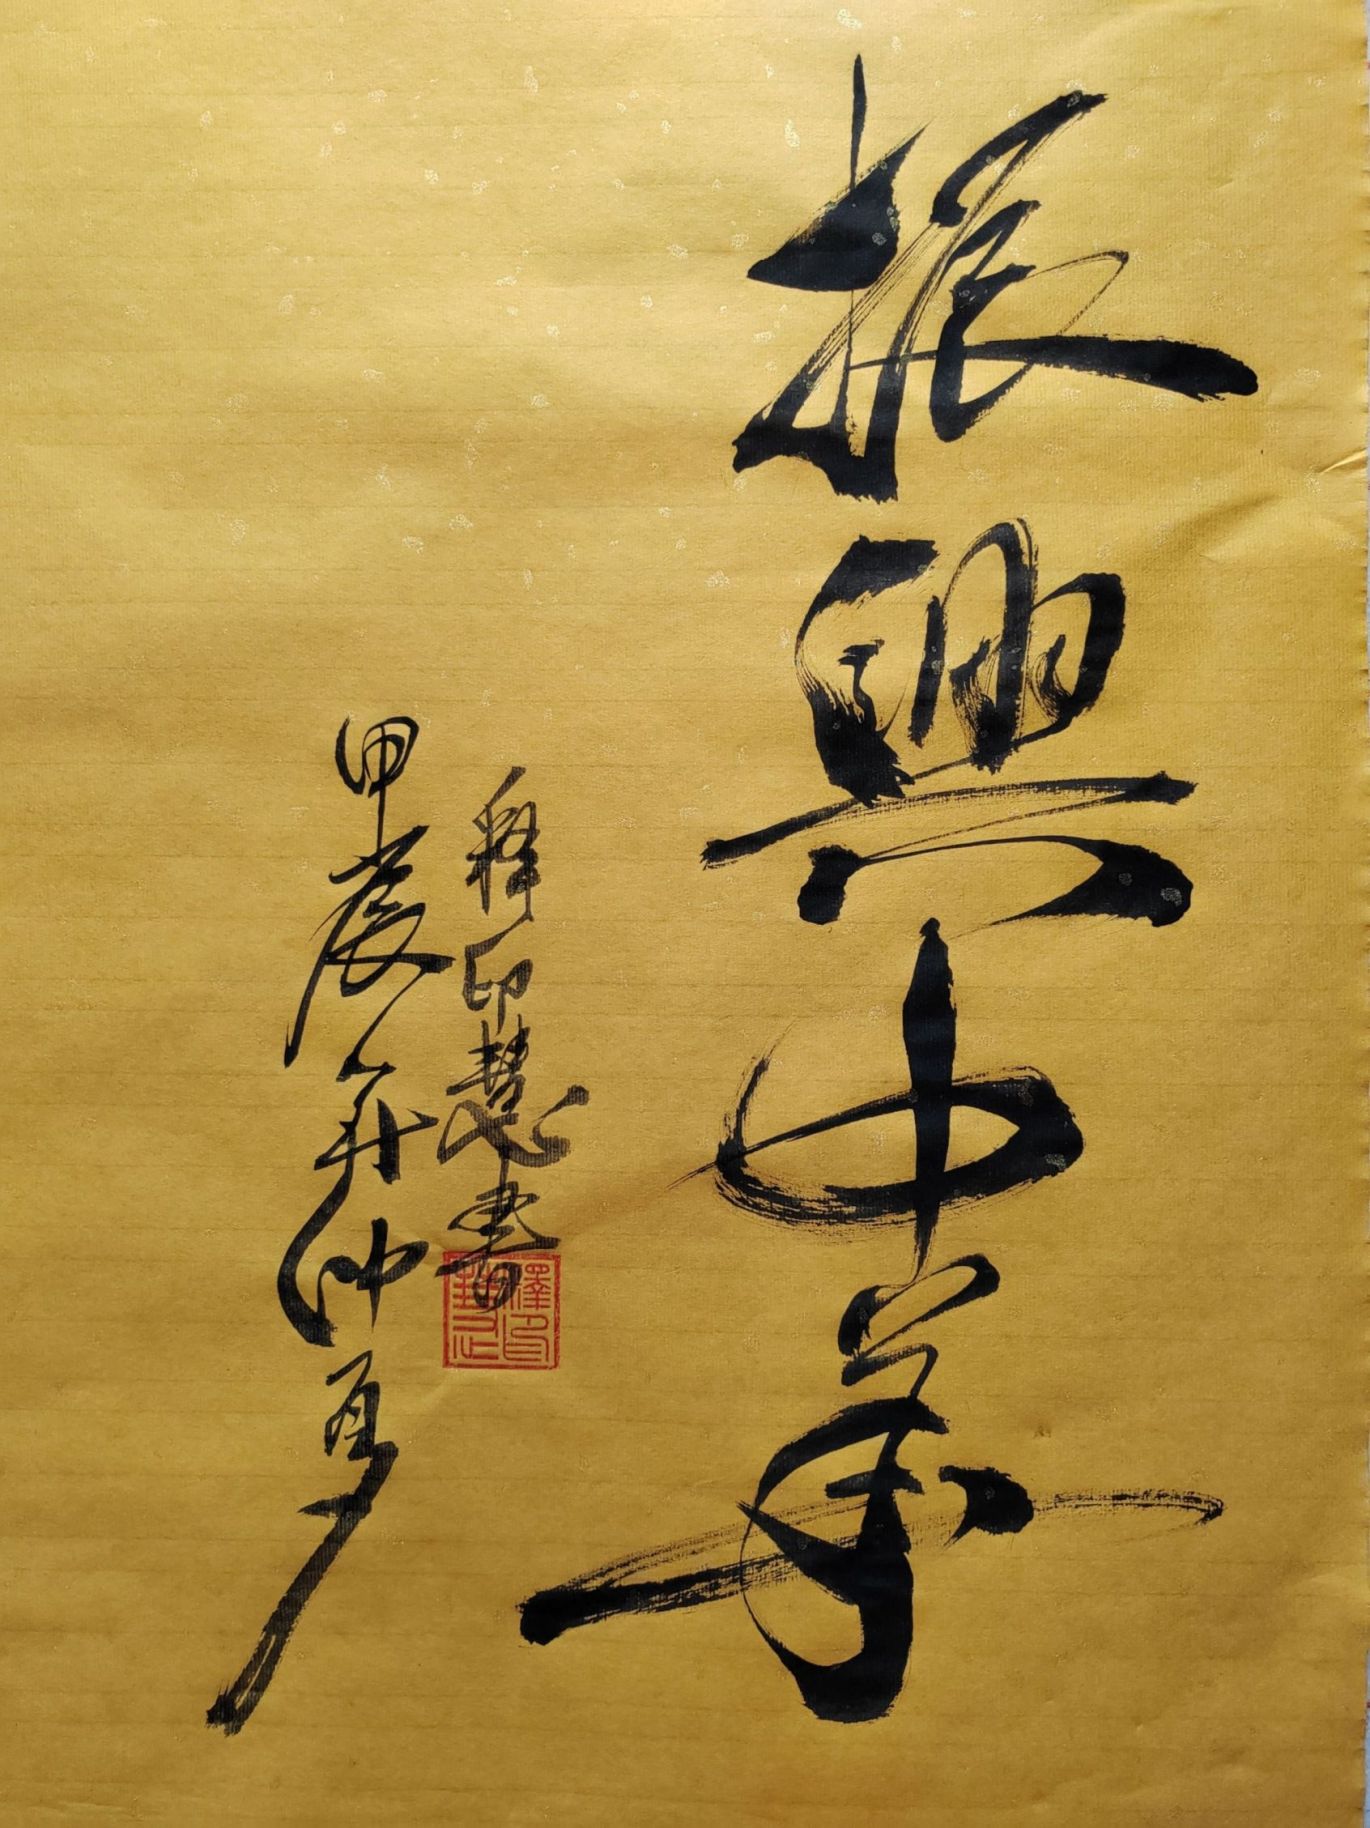 振興中華
释印慧書
甲辰年仲夏
釋印